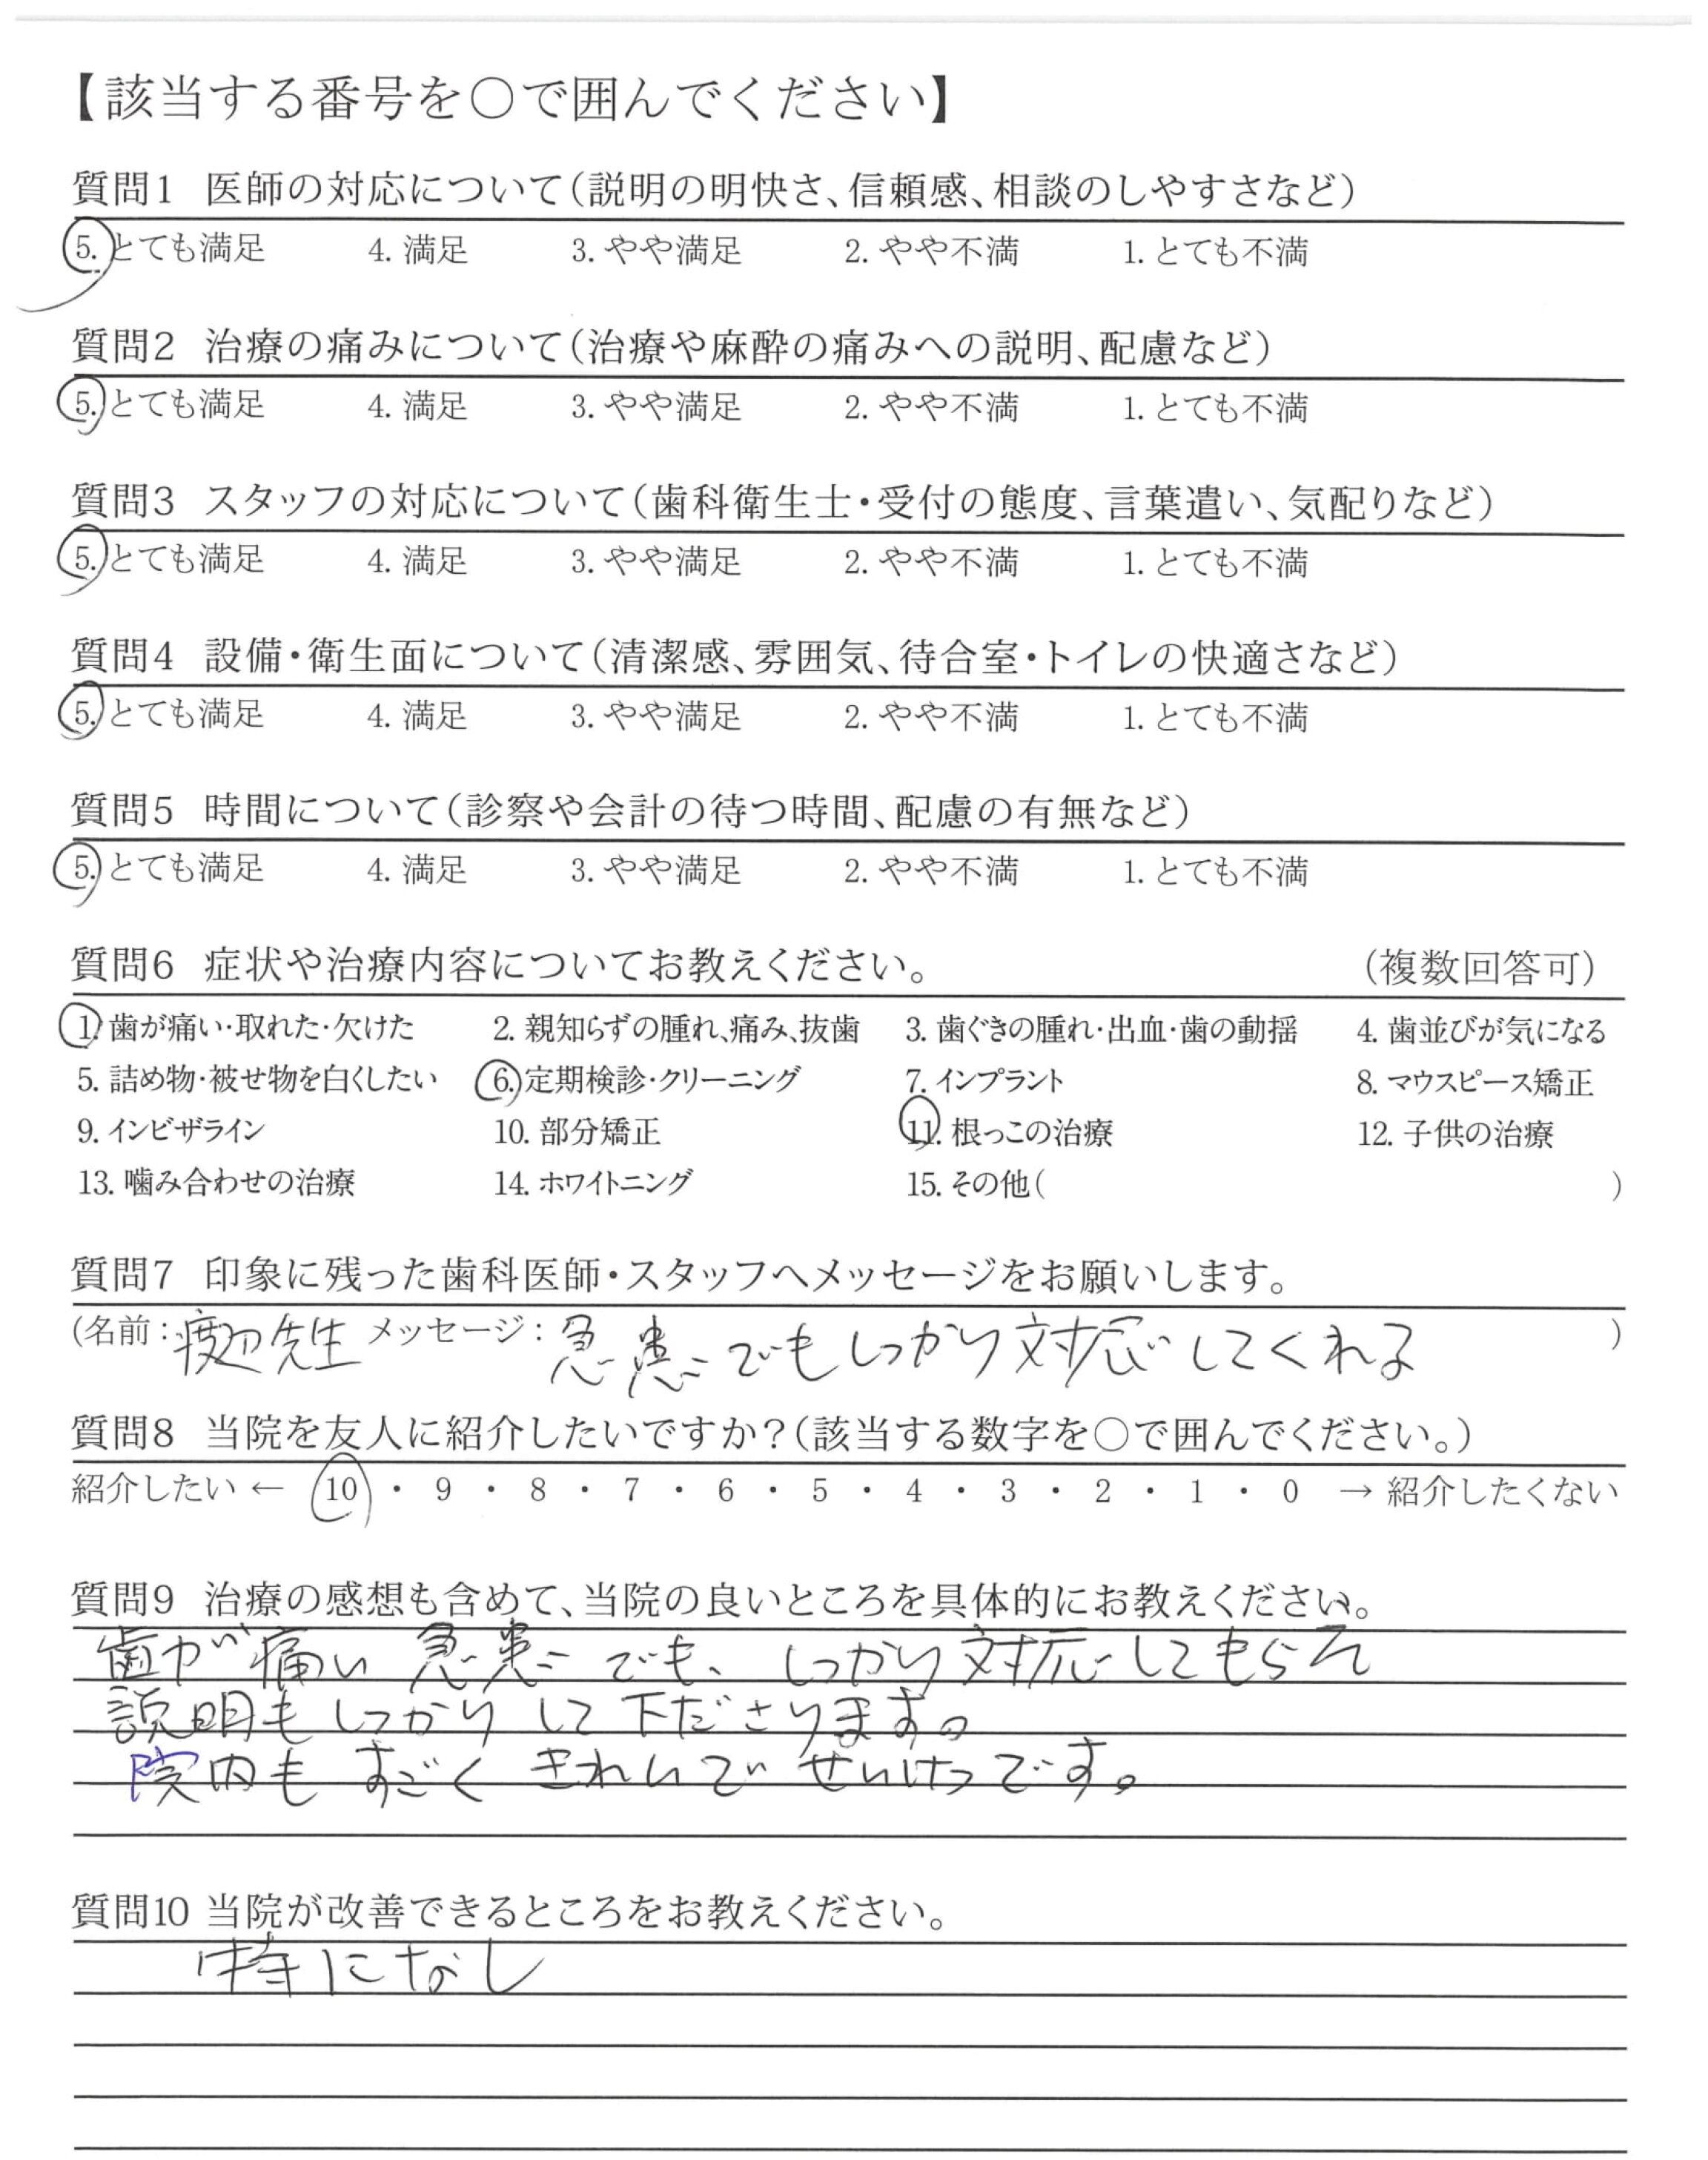 【該当する番号を○で囲んでください】
質問1 医師の対応について(説明の明快さ、信頼感、相談のしやすさなど)
5. とても満足 4. 満足 3. やや満足 2. やや不満 1. とても不満
質問2 治療の痛みについて(治療や麻酔の痛みへの説明、配慮など)
5. とても満足 4. 満足 3. やや満足 2. やや不満 1. とても不満
質問3 スタッフの対応について(歯科衛生士・受付の態度、言葉遣い、気配りなど)
5. とても満足 4. 満足 3. やや満足 2. やや不満 1. とても不満
質問4 設備・衛生面について(清潔感、雰囲気、待合室・トイレの快適さなど)
5. とても満足 4. 満足 3. やや満足 2. やや不満 1. とても不満
質問5 時間について(診察や会計の待つ時間、配慮の有無など)
5. とても満足 4. 満足 3. やや満足 2. やや不満 1. とても不満
質問6 症状や治療内容についてお教えください。 (複数回答可)
1. 歯が痛い・取れた・欠けた 2. 親知らずの腫れ、痛み、抜歯 3. 歯ぐきの腫れ・出血・歯の動揺 4. 歯並びが気になる
5. 詰め物・被せ物を白くしたい 6. 定期検診・クリーニング 7. インプラント 8. マウスピース矯正
9. インビザライン 10. 部分矯正 11. 根っこの治療 12. 子供の治療
13. 噛み合わせの治療 14. ホワイトニング 15. その他( )
質問7 印象に残った歯科医師・スタッフへメッセージをお願いします。
(名前: 先生 メッセージ: 急患でもしっかり対応してくれる )
質問8 当院を友人に紹介したいですか?(該当する数字を○で囲んでください。)
紹介したい ← 10 ・ 9 ・ 8 ・ 7 ・ 6 ・ 5 ・ 4 ・ 3 ・ 2 ・ 1 ・ 0 → 紹介したくない
質問9 治療の感想も含めて、当院の良いところを具体的にお教えください。
歯が痛い 急患でも、しっかり対応してもらえ
説明もしっかりして下ださります。
院内もすごくきれいでせいけつです。
質問10 当院が改善できるところをお教えください。
特になし